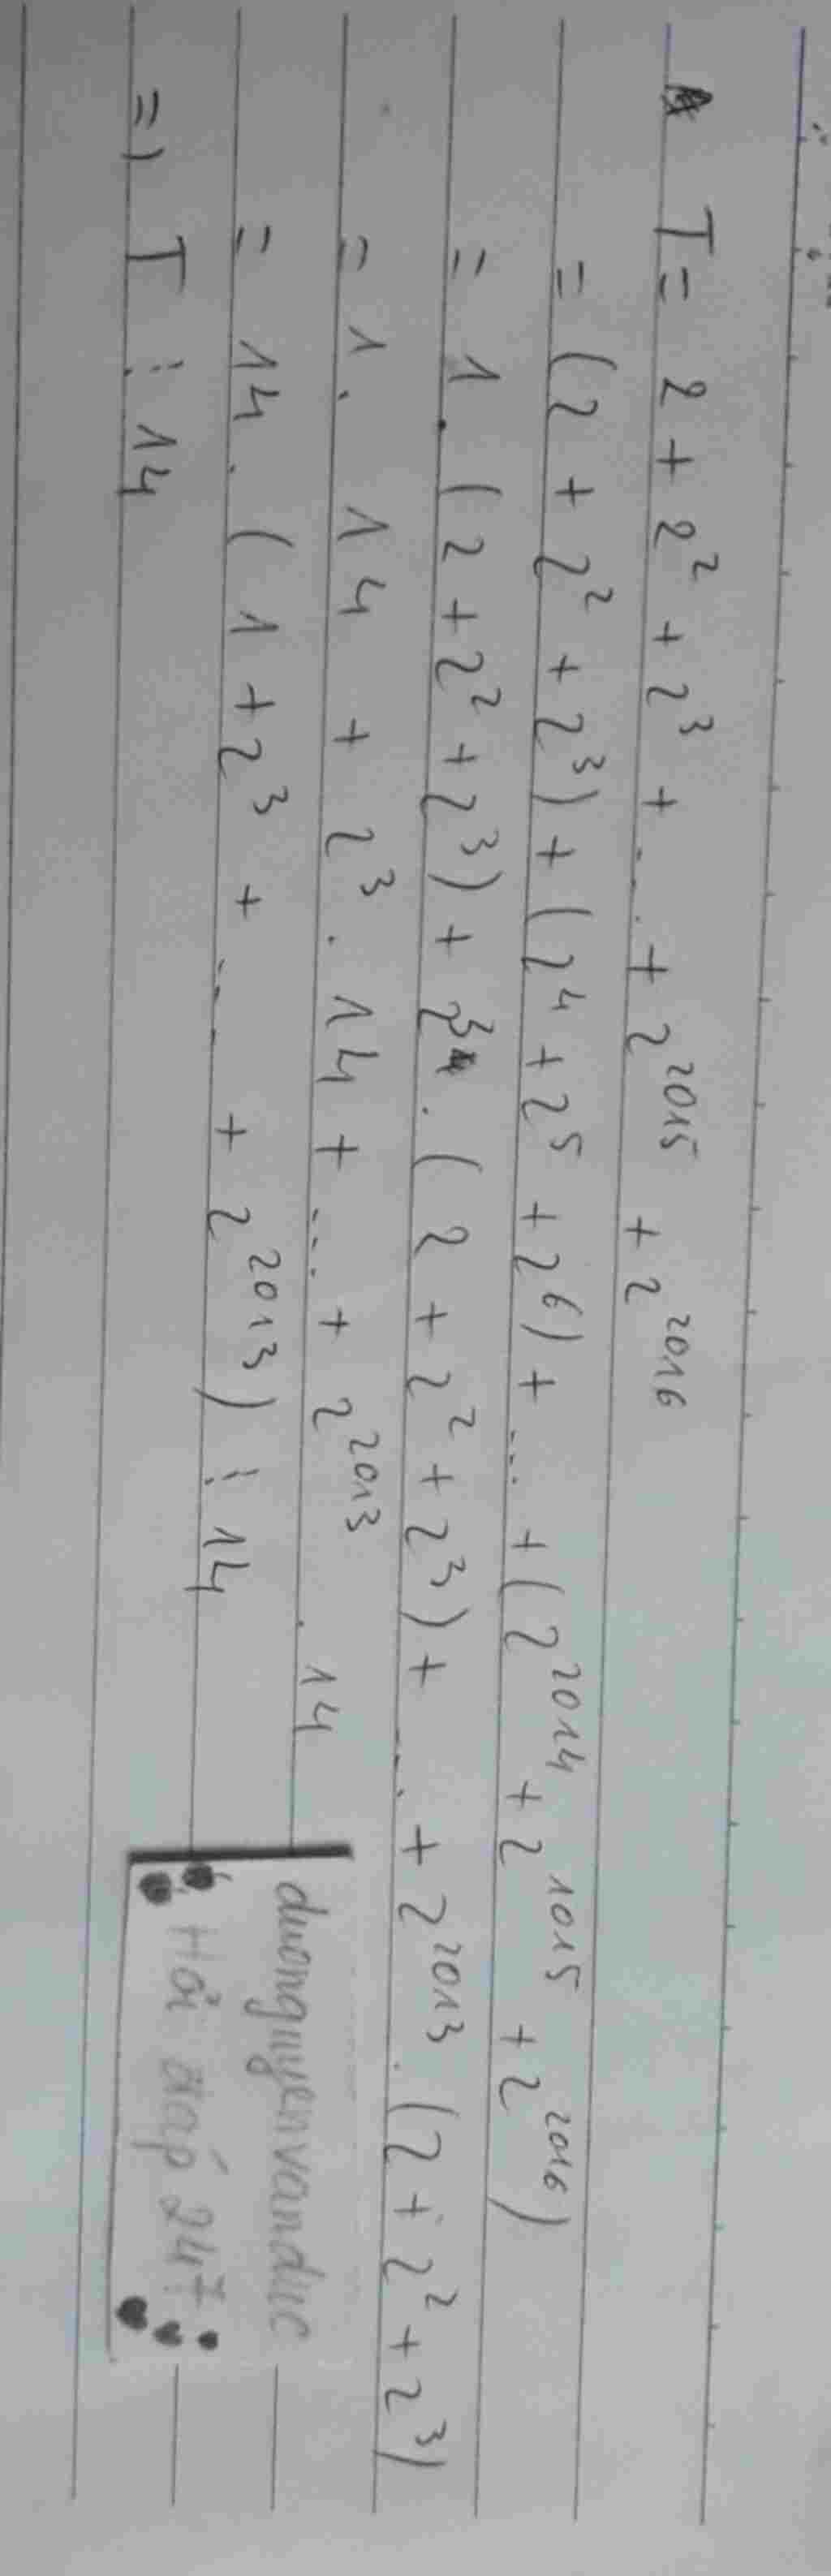 T = 2 + 2² + 2³ + ... + 2²⁰¹⁵ + 2²⁰¹⁶
= (2 + 2² + 2³) + (2⁴ + 2⁵ + 2⁶) + ... + (2²⁰¹⁴ + 2¹⁰¹⁵ + 2²⁰¹⁶)
= 1 . (2 + 2² + 2³) + 2³ . (2 + 2² + 2³) + ... + 2²⁰¹³ . (2 + 2² + 2³)
= 1 . 14 + 2³ . 14 + ... + 2²⁰¹³ . 14
= 14 . (1 + 2³ + ... + 2²⁰¹³) ⋮ 14
=) T ⋮ 14
duongnuyenvanduc
Hỏi đáp 247